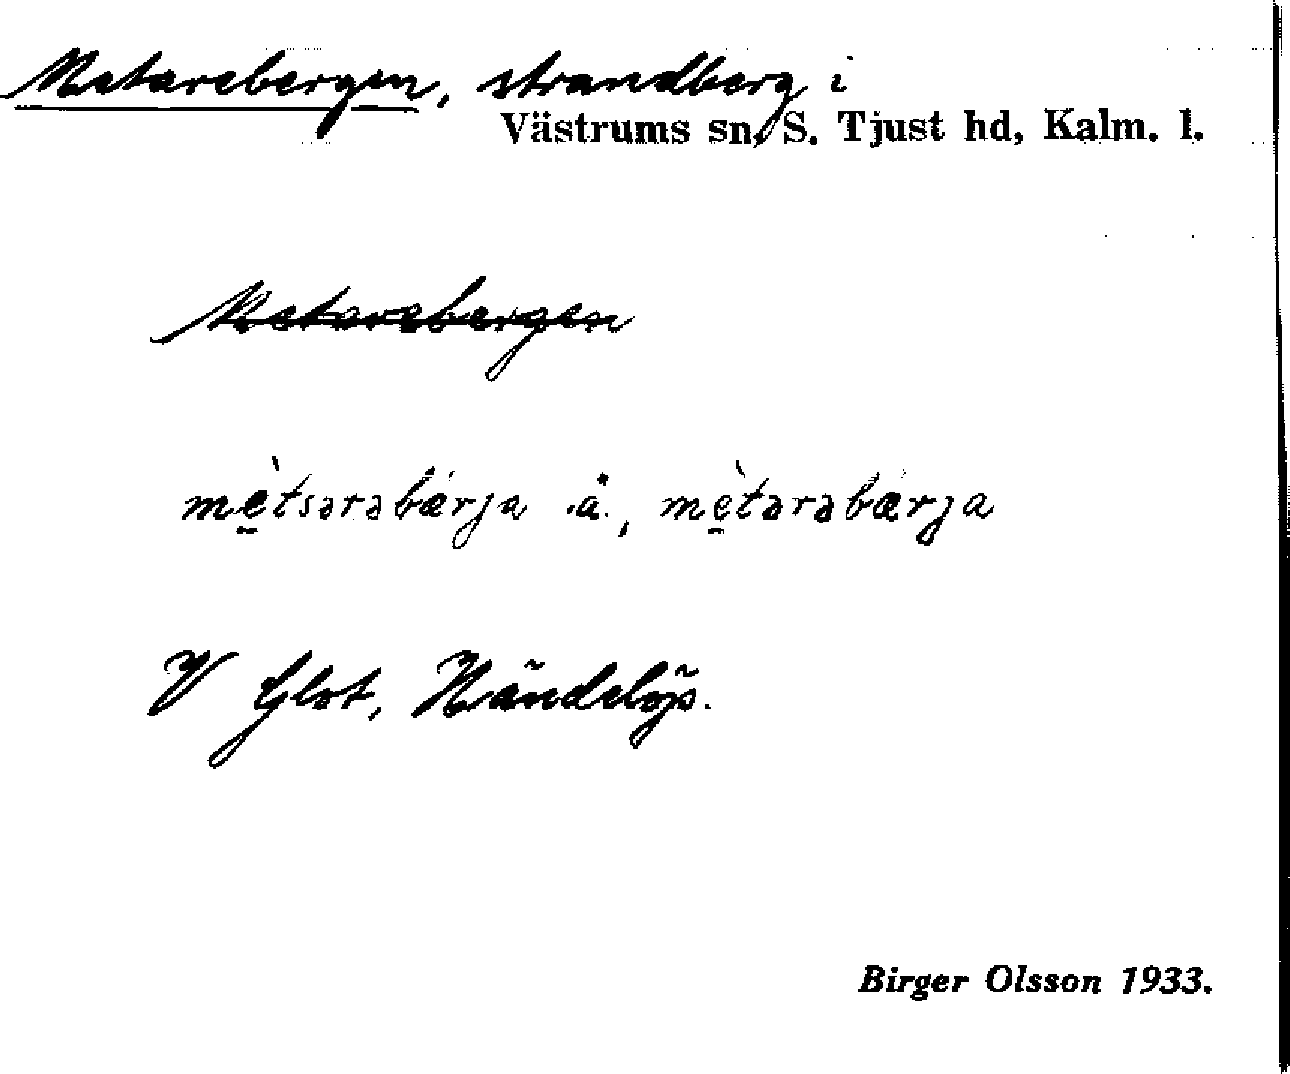 Metarebergen, strandberg i
Västrums sn, S. Tjust hd, Kalm. l.
Metarebergen
mètsərəbærja .å., mètərəbærja
V Glot, Händelöp.
Birger Olsson 1933.